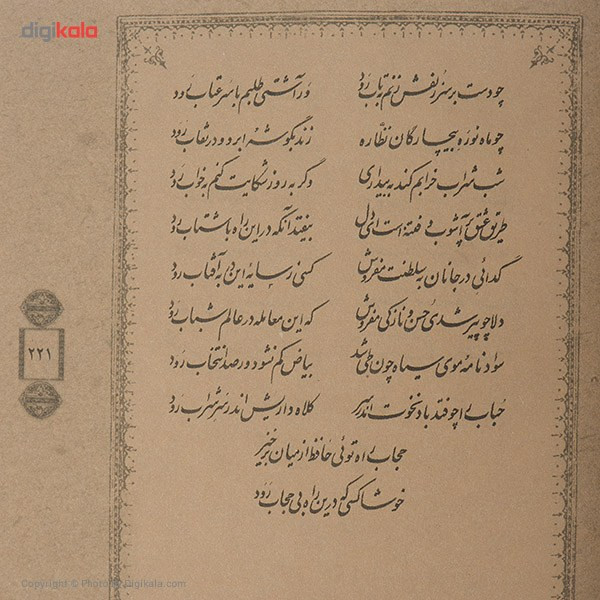 digikala
چو دست بر سر زلفش زنم به تاب رود ور آشتی طلبم با سر عتاب رود
چو ماه نو ره بیچارگان نظاره زند بگوشه ابرو و در نقاب رود
شب شراب خرابم کند به بیداری وگر به روز شکایت کنم به خواب رود
طریق عشق پر آشوب و فتنه است ای دل بیفتد آنکه در این راه با شتاب رود
گدائی در جانان به سلطنت مفروش کسی ز سایه این در به آفتاب رود
دلا چو پیر شدی حسن و نازکی مفروش که این معامله در عالم شباب رود
سواد نامه موی سیاه چون طی شد بیاض کم نشود ور صد انتخاب رود
حباب را چو فتد باد نخوت اندر سر کلاه داریش اندر سر شراب رود
حجاب راه توئی حافظ از میان برخیز
خوشا کسی که درین راه بی حجاب رود
۲۲۱
Copyright © Photo By Digikala.com